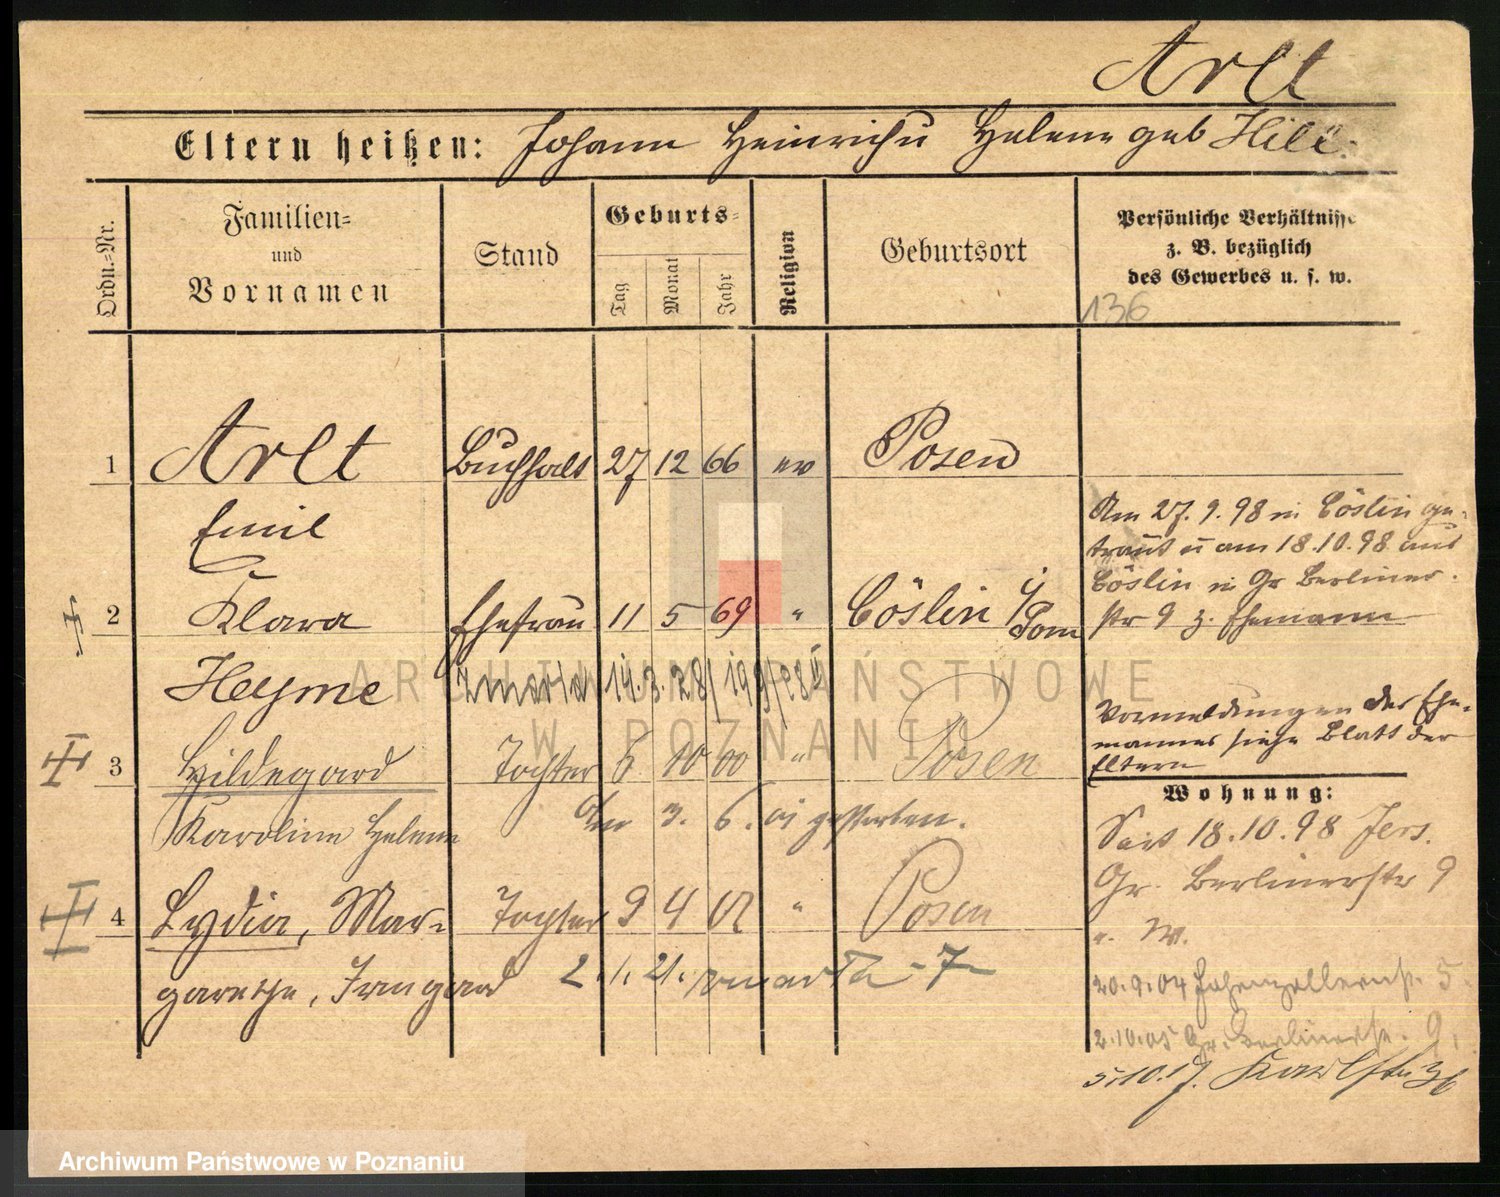 Arlt
Eltern heißen: Johann Heinrich u Helene geb
Ordn.-Nr.
Familien-
und
Vornamen
Stand
Geburts-
Tag
Monat
Jahr
Religion
Geburtsort
Persönliche Verhältnisse
z. B. bezüglich
des Gewerbes u. s. w.
136
1 Arlt Buchhalt 27 12 66 ev Posen
Emil
Am 27. 9. 98 in Cöslin ge-
traut u am 18.10.98 aus
Cöslin in Gr Berliner
str 9 z. Ehemann
2 Klara Ehefrau 11 5 69 " Cöslin i/Pom
Heyme zmarla 14.3.28/
Vormeldungen des Ehe-
mannes siehe Blatt der
Eltern
3 Hildegard Tochter 6 10 00 " Posen
Karoline Helene am 3. 6. 01 gestorben.
Wohnung:
Seit 18.10.98 Jers.
Gr. Berlinerstr 9
4 Lydia, Mar- Tochter 9 4 02 " Posen
garethe, Irmgard 2.1.21. zmarła
20.9.04 Hohenzollernstr. 5.
2.10.05 Gr. Berlinerstr. 9.
5.10.17. Karlstr 36
ARCHIWUM PAŃSTWOWE
W POZNANIU
Archiwum Państwowe w Poznaniu